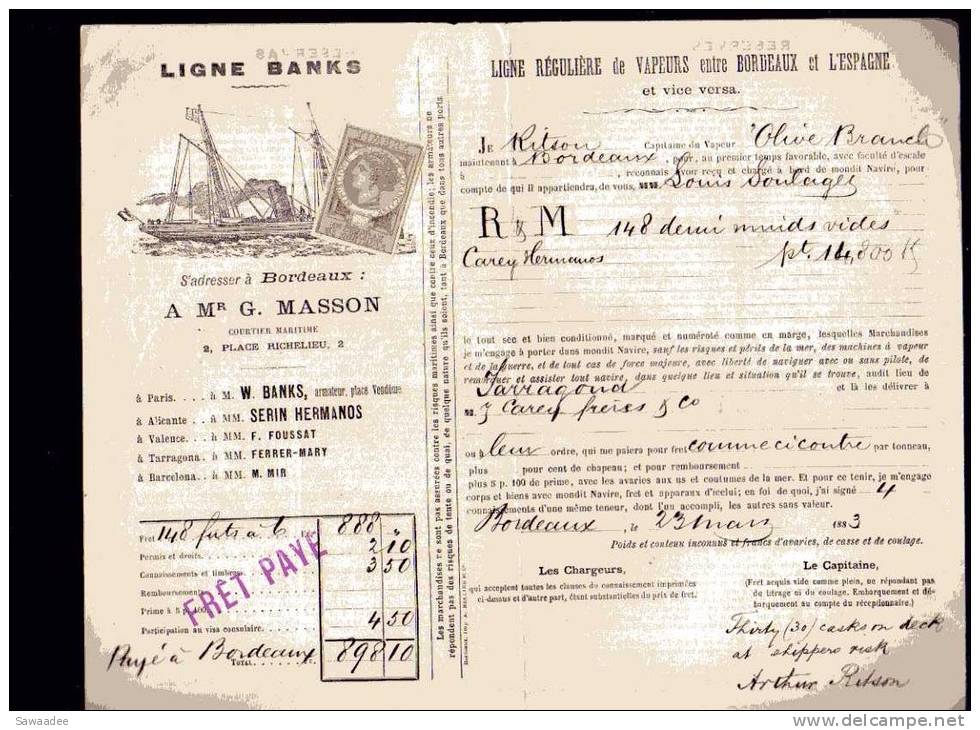 LIGNE BANKS
S'adresser à Bordeaux :
A MR G. MASSON
COURTIER MARITIME
2, PLACE RICHELIEU, 2
à Paris.... à M. W. BANKS, armateur, place Vendôme
à Alicante .. à MM. SERIN HERMANOS
à Valence .. à MM. F. FOUSSAT
à Tarragona. à MM. FERRER-MARY
à Barcelona.. à MM. M. MIR
Fret 148 futs à 6 888 "
Permis et droits. 2 10
Connaissements et timbres 3 50
Remboursements
Prime à 5 p. 100
Participation au visa consulaire. 4 50
Payé à Bordeaux TOTAL 898 10
FRÊT PAYÉ
Les marchandises ne sont pas assurées contre les risques maritimes ainsi que contre ceux d'incendie; les armateurs ne
répondent pas des risques de tente ou de quai, de quelque nature qu'ils soient, tant à Bordeaux que dans tous autres ports.
LIGNE RÉGULIÈRE de VAPEURS entre BORDEAUX et L'ESPAGNE
et vice versa.
JE Ritson Capitaine du Vapeur "Olive Branch"
maintenant à Bordeaux, pour, au premier temps favorable, avec faculté d'escale
, reconnais avoir reçu et chargé à bord de mondit Navire, pour
compte de qui il appartiendra, de vous, Louis Soulages
R & M 148 demi muids vides
Carey Hermanos pt. 14,800 K
le tout sec et bien conditionné, marqué et numéroté comme en marge, lesquelles Marchandises
je m'engage à porter dans mondit Navire, sauf les risques et périls de la mer, des machines à vapeur
et de la guerre, et de tout cas de force majeure, avec liberté de naviguer avec ou sans pilote, de
remorquer et assister tout navire, dans quelque lieu et situation qu'il se trouve, audit lieu de
Tarragona et là les délivrer à
Carey frères & Co
ou à leur ordre, qui me paiera pour fret comme ci contre par tonneau,
plus pour cent de chapeau; et pour remboursement
plus 5 p. 100 de prime, avec les avaries aux us et coutumes de la mer. Et pour ce tenir, je m'engage
corps et biens avec mondit Navire, fret et apparaux d'icelui; en foi de quoi, j'ai signé 4
connaissements d'une même teneur, dont l'un accompli, les autres sans valeur.
Bordeaux, le 23 mars 1883
Poids et contenu inconnus et francs d'avaries, de casse et de coulage.
Les Chargeurs,
qui acceptent toutes les clauses du connaissement imprimées
ci-dessus et d'autre part, étant substantielles du prix de fret.
Le Capitaine,
(Fret acquis vide comme plein, ne répondant pas
de titrage ni du coulage. Embarquement et dé-
barquement au compte du réceptionnaire.)
Thirty (30) casks on deck
at shippers risk
Arthur Ritson
Sawaadee
www.delcampe.net